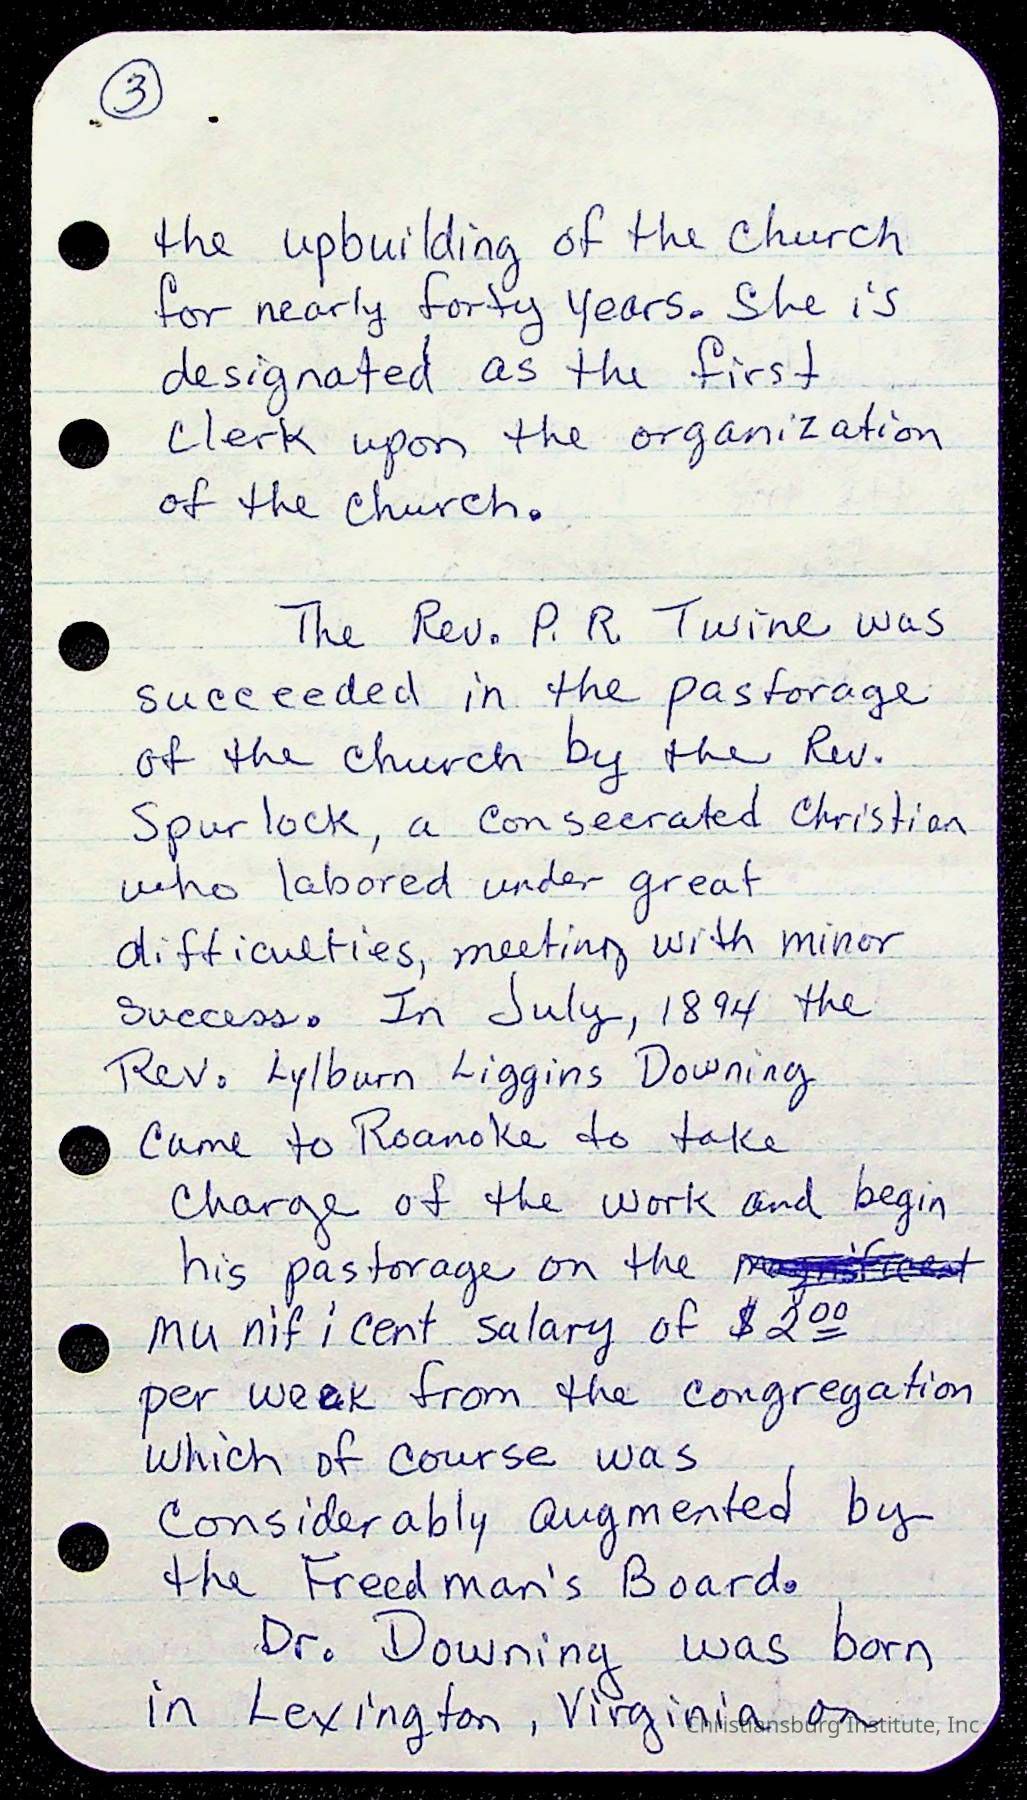 3
the upbuilding of the church
for nearly forty years. She is
designated as the first
Clerk upon the organization
of the church.
The Rev. P. R. Twine was
succeeded in the pastorage
of the church by the Rev.
Spurlock, a consecrated Christian
who labored under great
difficulties, meeting with minor
success. In July, 1894 the
Rev. Lylburn Liggins Downing
came to Roanoke to take
charge of the work and begin
his pastorage on the magnificent
munificent salary of $2.00
per week from the congregation
which of course was
considerably augmented by
the Freedman's Board.
Dr. Downing was born
in Lexington, Virginia on
Christiansburg Institute, Inc